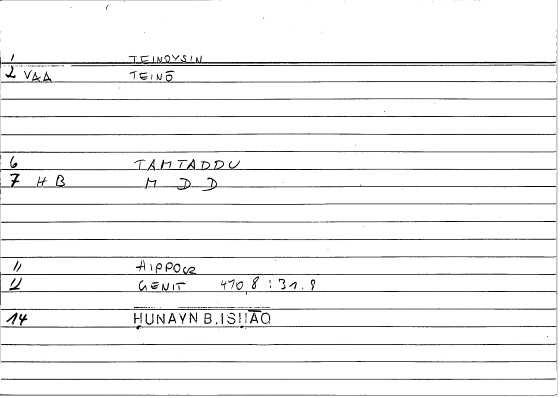 1 TEINOYSIN
2 VAA TEINŌ
6 TAMTADDU
7 HB M D D
11 HIPPOCR
12 GENIT 470,8 : 31.9
14 ḤUNAYN B. ISḤĀQ